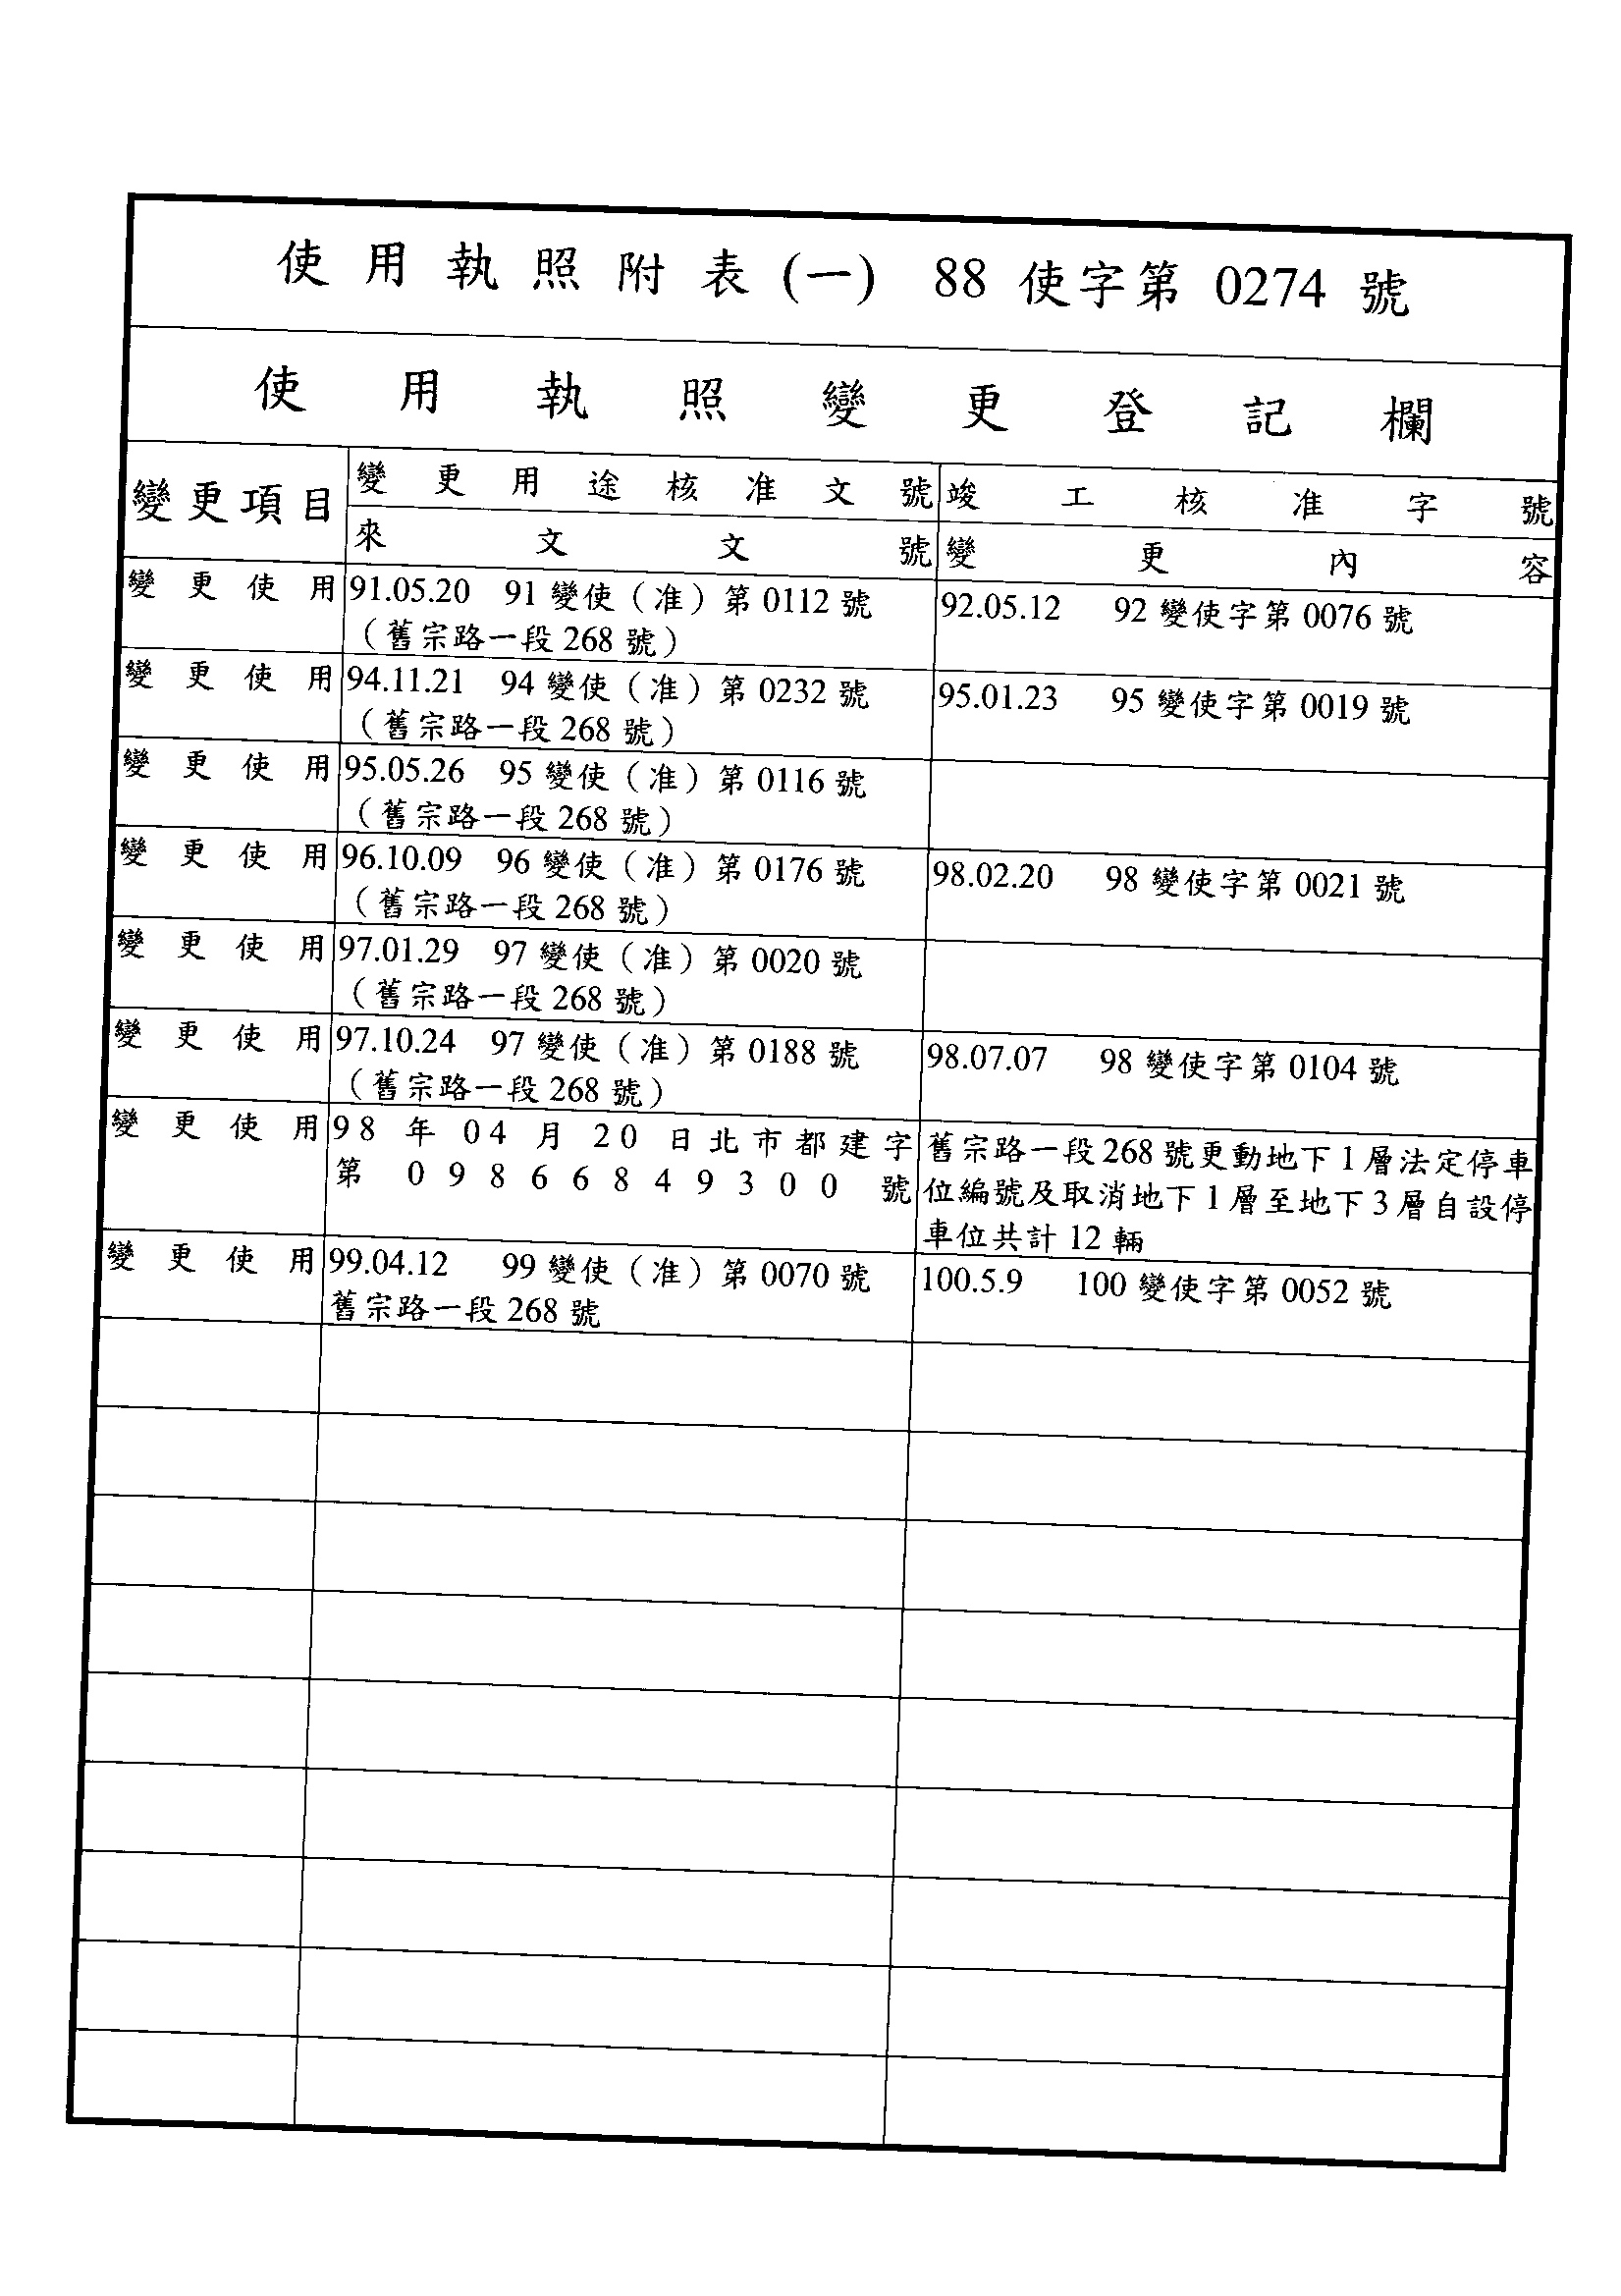 使用執照附表(一) 88 使字第 0274 號
使用執照變更登記欄
變更項目
變更用途核准文號
竣工核准字號
來文文號
變更內容
變更使用
91.05.20 91 變使（准）第 0112 號
（舊宗路一段 268 號）
92.05.12 92 變使字第 0076 號
變更使用
94.11.21 94 變使（准）第 0232 號
（舊宗路一段 268 號）
95.01.23 95 變使字第 0019 號
變更使用
95.05.26 95 變使（准）第 0116 號
（舊宗路一段 268 號）
變更使用
96.10.09 96 變使（准）第 0176 號
（舊宗路一段 268 號）
98.02.20 98 變使字第 0021 號
變更使用
97.01.29 97 變使（准）第 0020 號
（舊宗路一段 268 號）
變更使用
97.10.24 97 變使（准）第 0188 號
（舊宗路一段 268 號）
98.07.07 98 變使字第 0104 號
變更使用
98 年 04 月 20 日北市都建字
第 09866849300 號
舊宗路一段 268 號更動地下 1 層法定停車
位編號及取消地下 1 層至地下 3 層自設停
車位共計 12 輛
變更使用
99.04.12 99 變使（准）第 0070 號
舊宗路一段 268 號
100.5.9 100 變使字第 0052 號